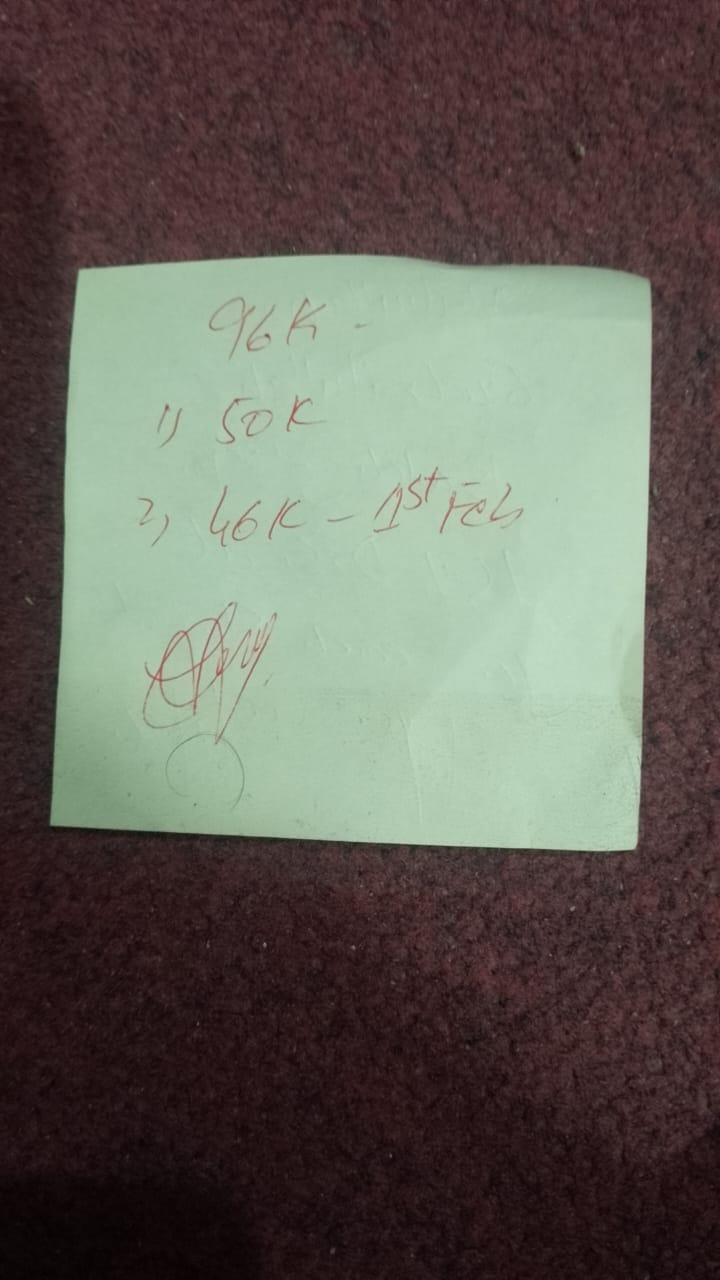 96K -
1) 50K
2) 46K - 1st Feb